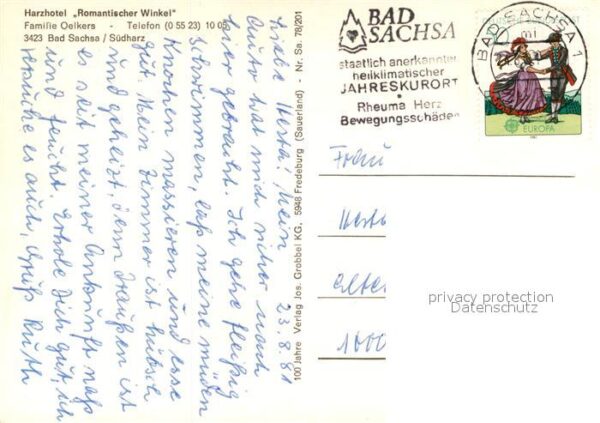 Harzhotel „Romantischer Winkel"
Familie Oelkers - Telefon (0 55 23) 10 05
3423 Bad Sachsa / Südharz
23.8.81
Liebe Herta! Mein
Auto hat mich sicher nach
hier gebracht. Ich gehe fleißig
schwimmen, laß meine müden
Knochen massieren und esse
gut. Mein Zimmer ist hübsch
und geheizt, denn draußen ist
es seit meiner Ankunft naß
und feucht. Erhole Dich gut, ich
versuche es auch, Gruß Ruth
100 Jahre Verlag Jos. Grobbel KG, 5948 Fredeburg (Sauerland) - Nr. Sa. 78/201
BAD
SACHSA
staatlich anerkannter
heilklimatischer
JAHRESKURORT
Rheuma Herz
Bewegungsschäden
BAD SACHSA 1
mi
EUROPA
Frau
Herta
1000
privacy protection
Datenschutz